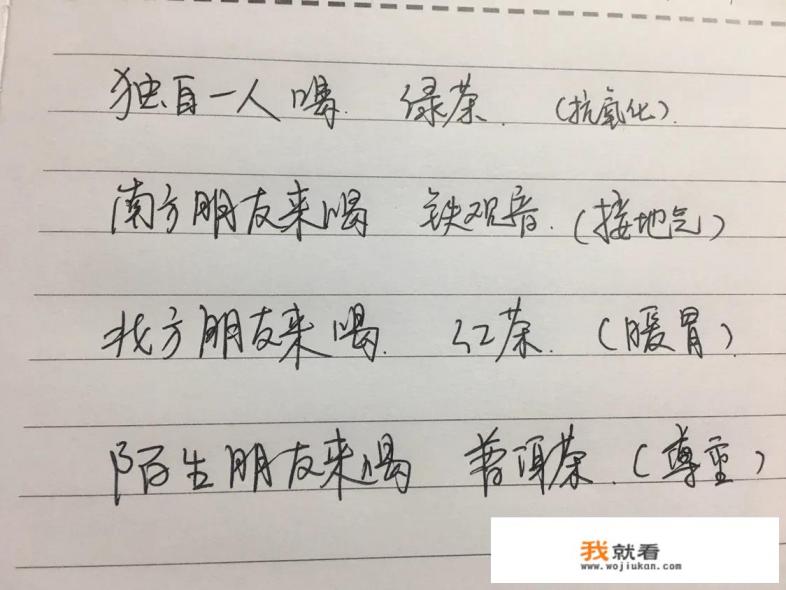 独自一人喝 绿茶 (抗氧化)
南方朋友来喝 铁观音 (接地气)
北方朋友来喝 红茶 (暖胃)
陌生朋友来喝 普洱茶 (尊重)
我就看
www.wojiukan.com